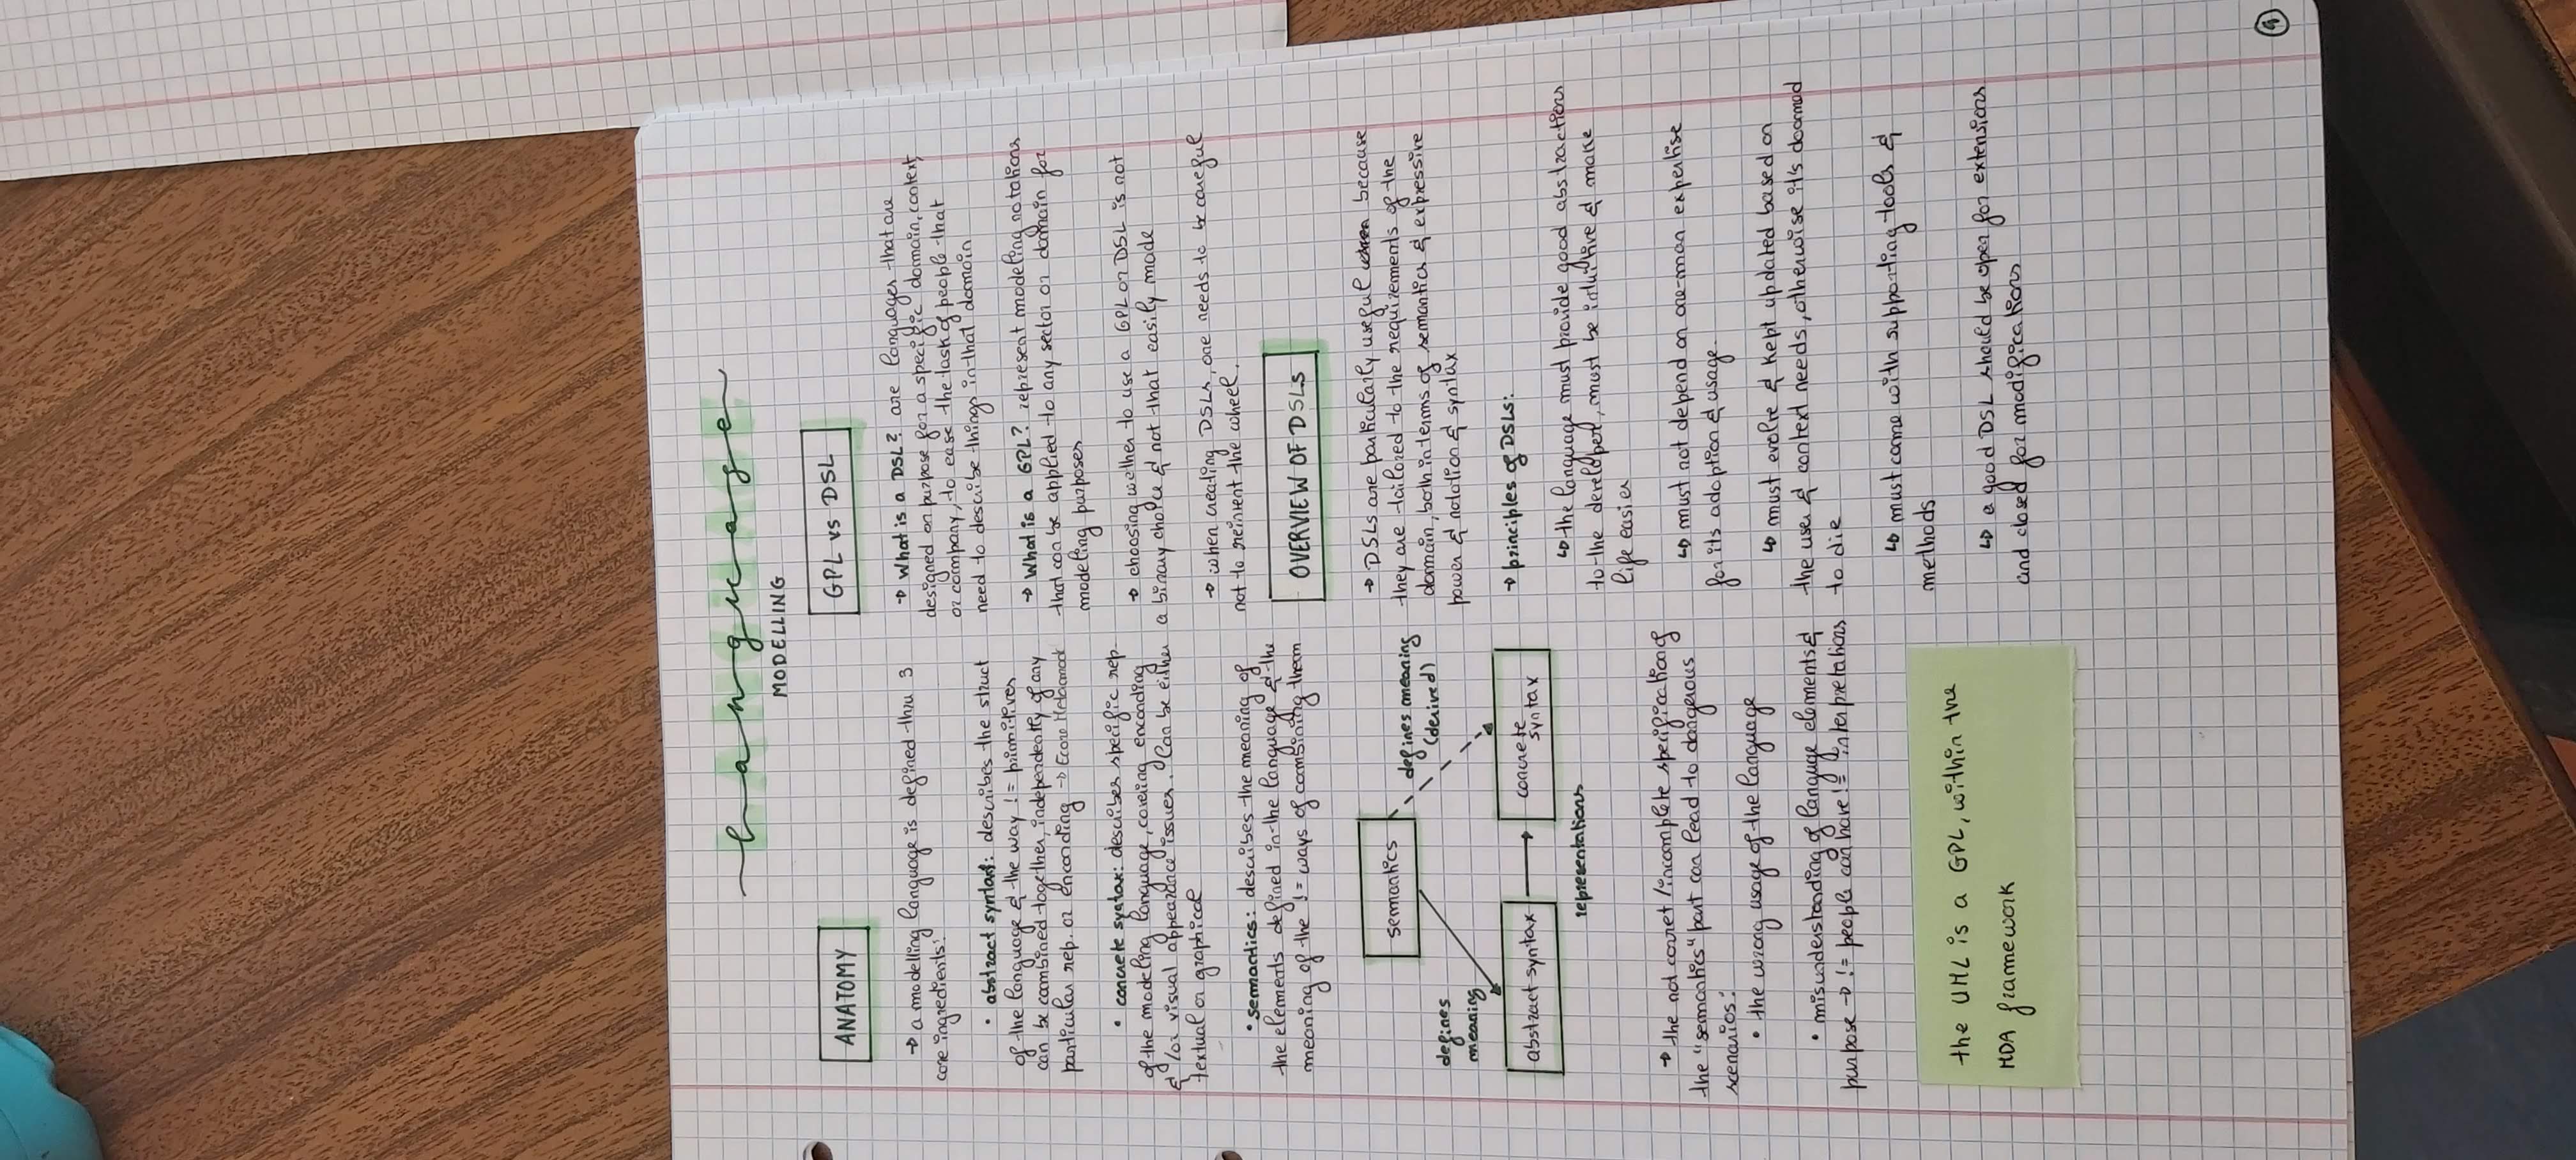 language
MODELLING
ANATOMY
→ a modelling language is defined thru 3
core ingredients:
• abstract syntax: describes the struct
of the language & the way != primitives
can be combined together, independently of any
particular rep. or enconding → Ecore Metamodel
• concrete syntax: describes specific rep.
of the modeling language, covering enconding
& /or visual appearance issues. Can be either
textual or graphical
• semantics: describes the meaning of
the elements defined in the language & the
meaning of the != ways of combining them
semantics
defines meaning
(derived)
defines
meaning
abstract syntax
concrete
syntax
representations
→ the not correct/incomplete specification of
the "semantics" part can lead to dangerous
scenarios:
• the wrong usage of the language
• misunderstanding of language elements &
purpose → != people can have != interpretations
the UML is a GPL, within the
MDA framework
GPL vs DSL
→ What is a DSL? are languages that are
designed on purpose for a specific domain, context,
or company, to ease the task of people that
need to describe things in that domain
→ What is a GPL? represent modeling notations
that can be applied to any sector or domain for
modeling purposes
→ choosing wether to use a GPL or DSL is not
a binary choice & not that easily made
→ when creating DSLs, one needs to be careful
not to reinvent the wheel.
OVERVIEW OF DSLs
→ DSLs are particularly useful because
they are tailored to the requirements of the
domain, both in terms of semantics & expressive
power & notation & syntax
→ principles of DSLs:
↳ the language must provide good abstractions
to the developer, must be intuitive & make
life easier
↳ must not depend on one-man expertise
for its adoption & usage
↳ must evolve & kept updated based on
the user & context needs, otherwise it's doomed
to die
↳ must come with supporting tools &
methods
↳ a good DSL should be open for extensions
and closed for modifications